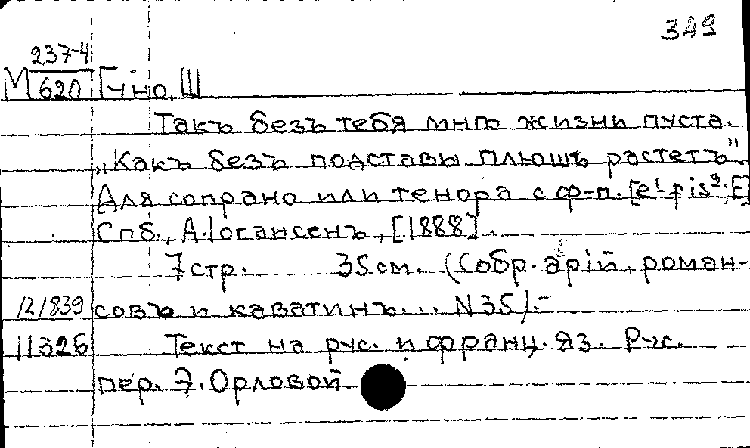 349
М 237-4
620 Гуно, Ш
Такъ безъ тебя мнѣ жизни пуста.
„Какъ безъ подставы плющъ растетъ"
Для сопрано или тенора с ф-п. [e¹-fis²; E]
Спб., А. Іогансенъ, [1888].
7 стр. 35 см. (Собр. арій, роман-
121839 совъ и каватинъ... N 35).-
11326 Текст на рус. и франц. яз. Рус.
пер. Э. Орловой